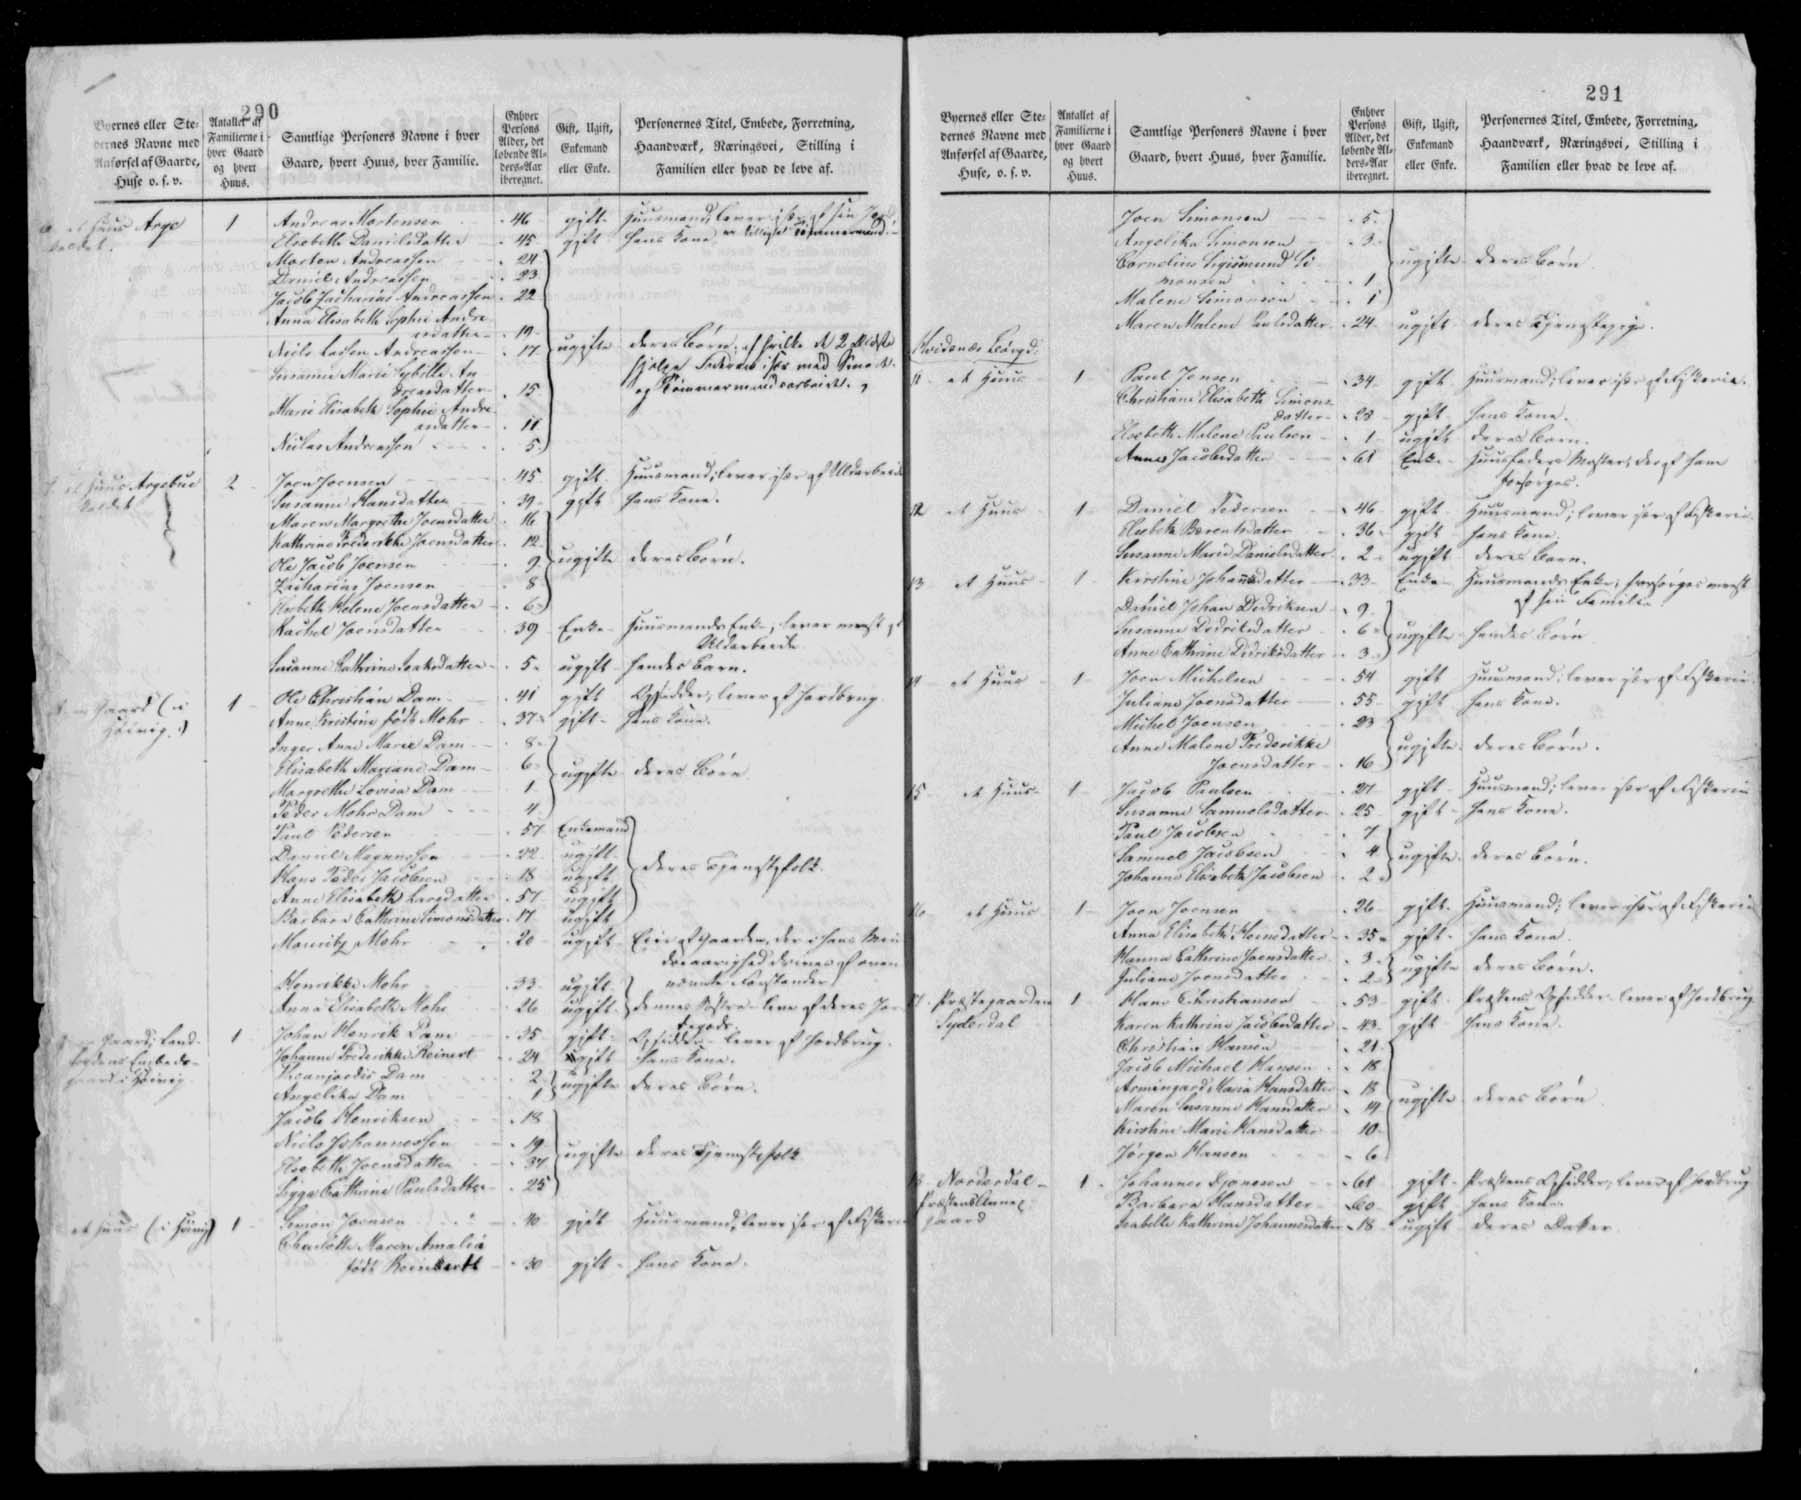 290
Byernes eller Ste-
dernes Navne med
Anførsel af Gaarde,
Huse o. s. v.
Antallet af
Familierne i
hver Gaard
og hvert
Huus.
Samtlige Personers Navne i hver
Gaard, hvert Huus, hver Familie.
Enhver
Persons
Alder, det
løbende Al-
ders-Aar
iberegnet.
Gift, Ugift,
Enkemand
eller Enke.
Personernes Titel, Embede, Forretning,
Haandværk, Næringsvei, Stilling i
Familien eller hvad de leve af.
et Huus Arge 1 Andreas Mortensen 46 gift Huusmand; lever især af sin Jord
kaldet. Elsebeth Danielsdatter 45 gift hans Kone
Morten Andreassen 24
Daniel Andreassen 23
Jacob Zacharias Andreassen 22
Anna Elisabeth Sophie Andre-
asdatter 19
Niels Andreassen 17 ugifte deres Børn, af hvilke de 2 Ældste
hjelpe Faderen især med Smede-
og Tømmermandsarbeide.
Susanne Marie Sybille An-
dreasdatter 15
Marie Elisabeth Sophie Andre-
asdatter 11
Niclas Andreassen 5
et Huus Argebue 2 Joen Joensen 45 gift Huusmand; lever især af Uldarbeide
kaldet Susanne Hansdatter 39 gift hans Kone.
Maren Margrethe Joensdatter 16
Kathrine Frederikke Joensdatter 12
Ole Jacob Joensen 9 ugifte deres Børn.
Zacharias Joensen 8
Elsebeth Helene Joensdatter 6
Rachel Joensdatter 39 Enke Huusmands Enke; lever meest af
Uldarbeide
Susanne Kathrine Isaksdatter 5 ugift hendes Barn.
Gaard (i 1 Ole Christian Dam 41 gift Opsidder; lever af Jordbrug
Hoivig.) Anne Kristine født Mohr 37 gift hans Kone.
Inger Anne Marie Dam 8
Elisabeth Mariane Dam 6 ugifte deres Børn
Margrethe Lovisa Dam 1
Peder Mohr Dam 4
Paul Pedersen 57 Enkemand
Daniel Magnussen 22 ugift
Hans Peder Jacobsen 18 ugift deres Tjenestefolk.
Anne Elisabeth Larsdatter 57 ugift
Barbara Cathrine Simonsdatter 17 ugift
Mouritz Mohr 20 ugift Eier af Gaarden, der i hans Min-
dreaarighed drives af oven-
nævnte Forstander
Henrikke Mohr 33 ugift
Anna Elisabeth Mohr 26 ugift dennes Søstre leve af deres Jor-
degods
Gaard; Land- 1 Johan Henrik Dam 35 gift Opsidder lever af Jordbrug.
Embeds- Johanne Frederikke Reinert 24 gift hans Kone.
gaard i Hoivig Dam 2 ugifte deres Børn.
Angelika Dam 1
Jacob Henriksen 18
Niels Johannessen 19 ugifte deres Tjenestefolk
Elsebeth Joensdatter 37
Sigga Cathrine Paulsdatter 25
et Huus (i Hoivig) 1 Simon Joensen 40 gift Huusmand; lever især af Fiskerie
Charlotte Maren Amalia
født Reinhardt 30 gift hans Kone.
291
Byernes eller Ste-
dernes Navne med
Anførsel af Gaarde,
Huse, o. s. v.
Antallet af
Familierne i
hver Gaard
og hvert
Huus.
Samtlige Personers Navne i hver
Gaard, hvert Huus, hver Familie.
Enhver
Persons
Alder, det
løbende Al-
ders-Aar
iberegnet.
Gift, Ugift,
Enkemand
eller Enke.
Personernes Titel, Embede, Forretning,
Haandværk, Næringsvei, Stilling i
Familien eller hvad de leve af.
Joen Simonsen 5
Angelika Simonsen 3
Cornelius Sigismund Si- ugifte deres Børn
monsen 1
Malene Simonsen 1
Maren Malene Paulsdatter 24 ugift deres Tjenestepige.
Hvidenæs Bøigd:
11 et Huus 1 Paul Jensen 34 gift Huusmand; lever især af Fiskerie.
Christiane Elisabeth Simons-
datter 28 gift hans Kone.
Elsebeth Malene Paulsen 1 ugift deres Barn.
Anne Jacobsdatter 61 Enke Huusfaders Moster, der af ham
forsørges.
12 et Huus 1 Daniel Pedersen 46 gift Huusmand; lever især af Fiskerie
Elsebeth Berentsdatter 36 gift hans Kone
Susanne Marie Danielsdatter 2 ugift deres Barn.
13 et Huus 1 Kirstine Johannsdatter 33 Enke Huusmands Enke; forsørges meest
af sin Familie
Daniel Johan Didriksen 9
Susanne Didriksdatter 6 ugifte hendes Børn
Anne Cathrine Didriksdatter 3
14 et Huus 1 Joen Michelsen 54 gift Huusmand; lever især af Fiskerie
Juliane Joensdatter 55 gift hans Kone.
Michel Joensen 23
Anne Malene Frederikke ugifte deres Børn.
Joensdatter 16
15 et Huus 1 Jacob Paulsen 27 gift Huusmand; lever især af Fiskerie
Susanne Samuelsdatter 25 gift hans Kone.
Paul Jacobsen 7
Samuel Jacobsen 4 ugifte deres Børn.
Johanne Elsebeth Jacobsen 2
16 et Huus 1 Joen Joensen 26 gift Huusmand; lever især af Fiskerie
Anna Elisabeth Heinsdatter 35 gift hans Kone.
Hanna Cathrine Joensdatter 3 ugifte deres Børn.
Juliane Joensdatter 2
17 Præstegaarden 1 Hans Christiansen 53 gift Præstens Opsidder lever af Jordbrug
Syderdal Karen Kathrine Jacobsdatter 43 gift hans Kone.
Christian Hansen 21
Jacob Michael Hansen 18
Armingard Maria Hansdatter 18 ugifte deres Børn
Maren Susanne Hansdatter 14
Kirstine Marie Hansdatter 10
Jørgen Hansen 6
18 Norderdal 1 Johannes Djonesen 61 gift Præstens Opsidder; lever af Jordbrug
Præstens Annex- Barbara Hansdatter 60 gift hans Kone
gaard Isabelle Kathrine Johannesdatter 18 ugift deres Datter